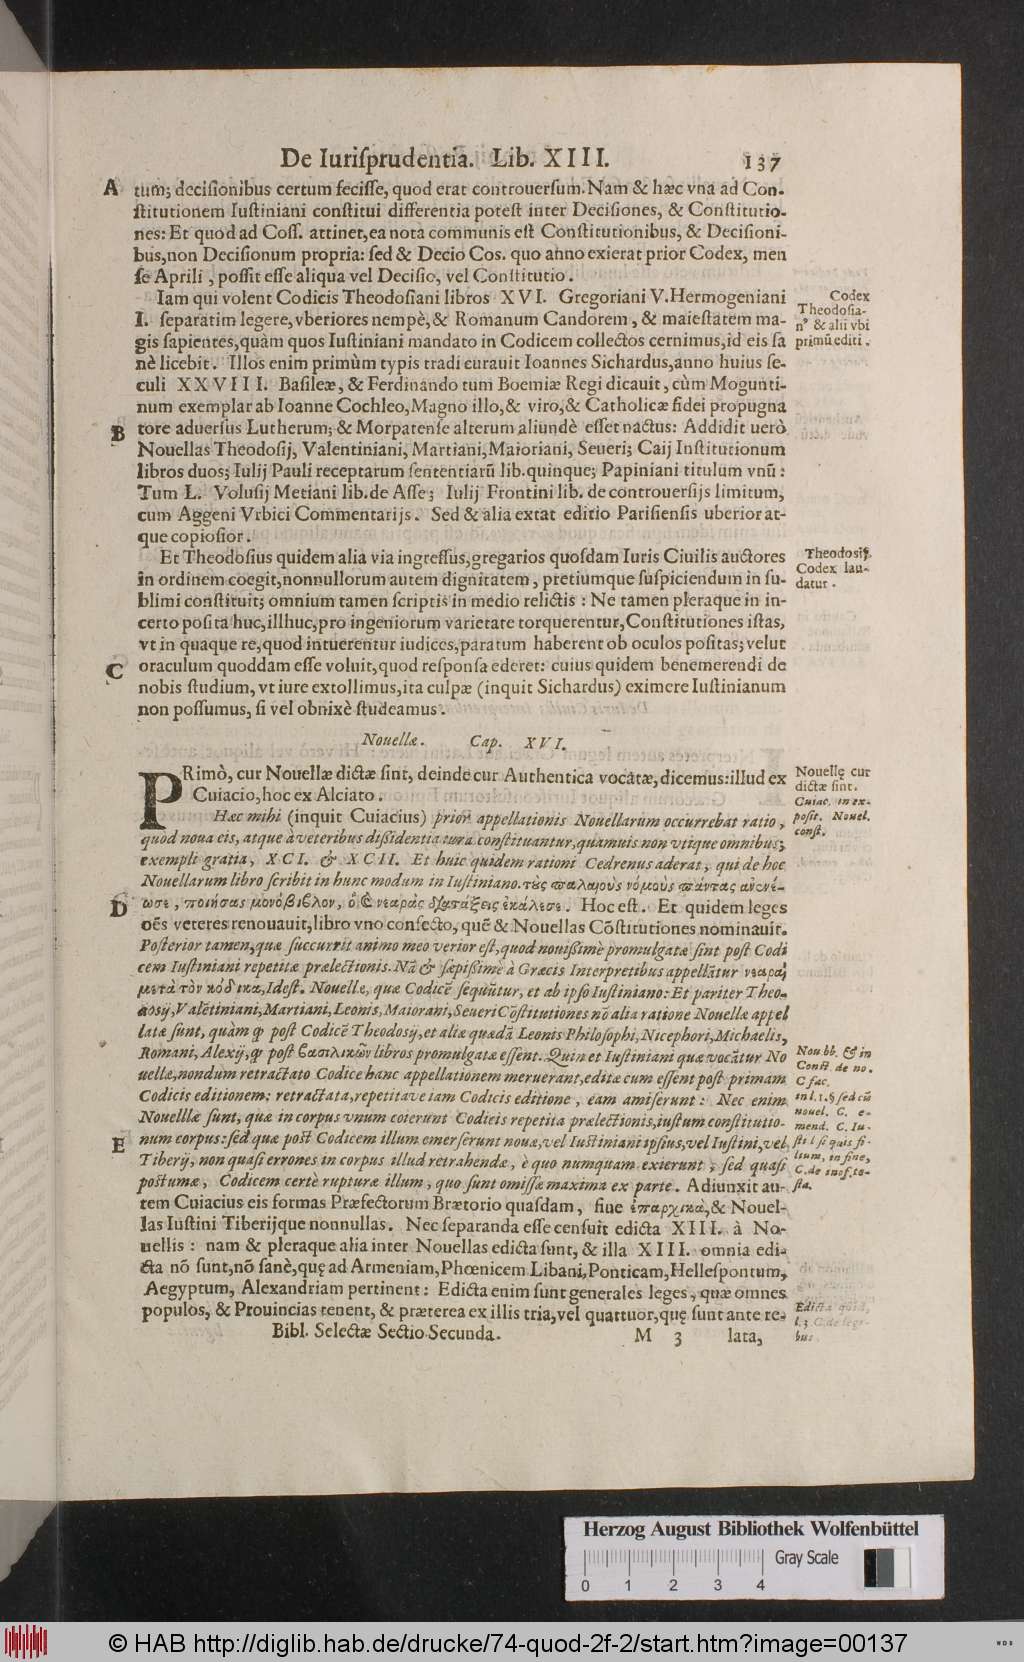 De Iuriſprudentia. Lib. XIII. 137
A tum; deciſionibus certum feciſſe, quod erat controuerſum. Nam & hæc vna ad Con-
ſtitutionem Iuſtiniani conſtitui differentia poteſt inter Deciſiones, & Conſtitutio-
nes: Et quod ad Coſſ. attinet, ea nota communis eſt Conſtitutionibus, & Deciſioni-
bus, non Deciſionum propria: ſed & Decio Cos. quo anno exierat prior Codex, men
ſe Aprili, poſſit eſſe aliqua vel Deciſio, vel Conſtitutio.
Iam qui volent Codicis Theodoſiani libros XVI. Gregoriani V. Hermogeniani
I. ſeparatim legere, vberiores nempè, & Romanum Candorem, & maieſtatem ma-
gis ſapientes, quàm quos Iuſtiniani mandato in Codicem collectos cernimus, id eis ſa
nè licebit. Illos enim primùm typis tradi curauit Ioannes Sichardus, anno huius ſe-
culi XXVIII. Baſileæ, & Ferdinando tum Boemiæ Regi dicauit, cùm Mogunti-
num exemplar ab Ioanne Cochleo, Magno illo, & viro, & Catholicæ fidei propugna
B tore aduerſus Lutherum; & Morpatenſe alterum aliundè eſſet nactus: Addidit uerò
Nouellas Theodoſij, Valentiniani, Martiani, Maioriani, Seueri; Caij Inſtitutionum
libros duos; Iulij Pauli receptarum ſententiarū lib. quinque; Papiniani titulum vnū:
Tum L. Voluſij Metiani lib. de Aſſe; Iulij Frontini lib. de controuerſijs limitum,
cum Aggeni Vrbici Commentarijs. Sed & alia extat editio Pariſienſis uberior at-
que copioſior.
Et Theodoſius quidem alia via ingreſſus, gregarios quoſdam Iuris Ciuilis auctores
in ordinem coegit, nonnullorum autem dignitatem, pretiumque ſuſpiciendum in ſu-
blimi conſtituit; omnium tamen ſcriptis in medio relictis: Ne tamen pleraque in in-
certo poſita huc, illhuc, pro ingeniorum varietate torquerentur, Conſtitutiones iſtas,
vt in quaque re, quod intuerentur iudices, paratum haberent ob oculos poſitas; velut
C oraculum quoddam eſſe voluit, quod reſponſa ederet: cuius quidem benemerendi de
nobis ſtudium, vt iure extollimus, ita culpæ (inquit Sichardus) eximere Iuſtinianum
non poſſumus, ſi vel obnixè ſtudeamus.
Codex
Theodoſia-
nꝰ & alii vbi
primū editi.
Theodosij
Codex lau-
datur.
Nouellæ. Cap. XVI.
PRimò, cur Nouellæ dictæ ſint, deinde cur Authentica vocatæ, dicemus: illud ex
Cuiacio, hoc ex Alciato.
Hæc mihi (inquit Cuiacius) prior appellationis Nouellarum occurrebat ratio,
quod noua eis, atque à veteribus diſſidentia iura conſtituantur, quamuis non vtique omnibus;
exempli gratia, XCI. & XCII. Et huic quidem rationi Cedrenus aderat, qui de hoc
Nouellarum libro ſcribit in hunc modum in Iuſtiniano. τὺς παλαιοὺς νόμους πάντας ἀνενέ-
D ωσε, ποιήσας μονόβιβλον, ὃ ϗ νεαρὰς διατάξεις ἐκάλεσε. Hoc eſt. Et quidem leges
oēs veteres renouauit, libro vno confecto, quē & Nouellas Cōſtitutiones nominauit.
Poſterior tamen, quæ ſuccurrit animo meo verior eſt, quod nouiſſimè promulgatæ ſint poſt Codi
cem Iuſtiniani repetitæ prælectionis. Nā & ſæpiſſimè à Græcis Interpretibus appellātur νεαραὶ
μετὰ τὸν κόδικα, Ideſt. Nouellæ, quæ Codicē ſequūtur, et ab ipſo Iuſtiniano: Et pariter Theo-
doſij, Valētiniani, Martiani, Leonis, Maiorani, Seueri Cōſtitutiones nō alia ratione Nouellæ appel
latæ ſunt, quàm ꝙ poſt Codicē Theodoſij, et aliæ quædā Leonis Philoſophi, Nicephori, Michaelis,
Romani, Alexij, ꝙ poſt βασιλικῶν libros promulgatæ eſſent. Quin et Iuſtiniani quæ vocātur No
uellæ, nondum retractato Codice hanc appellationem meruerant, editæ cum eſſent poſt primam
Codicis editionem: retractata, repetitave iam Codicis editione, eam amiſerunt: Nec enim
Nouelllæ ſunt, quæ in corpus vnum coierunt Codicis repetita prælectionis, iuſtum conſtitutio-
E num corpus: ſed quæ poſt Codicem illum emerſerunt nouæ, vel Iuſtiniani ipſius, vel Iuſtini, vel
Tiberij, non quaſi errones in corpus illud retrahendæ, è quo numquam exierunt; ſed quaſi
poſtumæ, Codicem certè rupturæ illum, quo ſunt omiſſæ maxima ex parte. Adiunxit au-
tem Cuiacius eis formas Præfectorum Brætorio quaſdam, ſiue ἐπαρχικὰ, & Nouel-
las Iuſtini Tiberijque nonnullas. Nec ſeparanda eſſe cenſuit edicta XIII. à No-
uellis: nam & pleraque alia inter Nouellas edicta ſunt, & illa XIII. omnia edi-
cta nō ſunt, nō ſanè, quę ad Armeniam, Phœnicem Libani, Ponticam, Helleſpontum,
Aegyptum, Alexandriam pertinent: Edicta enim ſunt generales leges, quæ omnes
populos, & Prouincias tenent, & præterea ex illis tria, vel quattuor, quę ſunt ante re-
Bibl. Selectæ Sectio Secunda. M 3 lata,
Nouellę cur
dictæ ſint.
Cuiac. in ex-
poſit. Nouel.
conſt.
Nou bb. & in
Conſt. de no.
C fac.
in l. 1. § ſed cū
nouel. C. e-
mend. C. Iu-
ſti l ſi quis fi-
lium, in fine,
C. de inof. te-
ſta.
Edicta quid,
l. 3 C. de lege-
bus.
Herzog August Bibliothek Wolfenbüttel
Gray Scale
0 1 2 3 4
© HAB http://diglib.hab.de/drucke/74-quod-2f-2/start.htm?image=00137